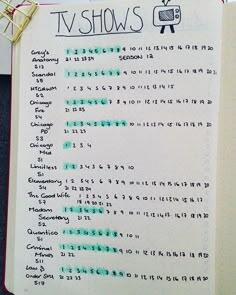 TV SHOWS
Grey's 1 2 3 4 5 6 7 8 9 10 11 12 13 14 15 16 17 18 19 20
Anatomy 21 22 23 24 SEASON 12
S12
Scandal 1 2 3 4 5 6 7 8 9 10 11 12 13 14 15 16 17 18 19 20 21
S5
HTGAWM 1 2 3 4 5 6 7 8 9 10 11 12 13 14 15
S2
Chicago 1 2 3 4 5 6 7 8 9 10 11 12 13 14 15 16 17 18 19 20
Fire 21 22 23
S4
Chicago 1 2 3 4 5 6 7 8 9 10 11 12 13 14 15 16 17 18 19 20
PD 21 22 23
S3
Chicago 1 2 3 4 5
Med
S1
Limitless 1 2 3 4 5 6 7 8 9 10
S1
Elementary 1 2 3 4 5 6 7 8 9 10 11 12 13 14 15 16 17 18 19 20
S4 21 22 23 24
The Good Wife 1 2 3 4 5 6 7 8 9 10 11 12 13 14 15 16
S7 17 18 19 20 21 22
Madam 1 2 3 4 5 6 7 8 9 10 11 12 13 14 15 16 17 18 19 20
Secretary 21 22
S2
Quantico 1 2 3 4 5 6 7 8 9 10 11
S1
Criminal 1 2 3 4 5 6 7 8 9 10 11 12 13 14 15 16 17 18 19 20
Minds 21 22
S11
Law & 1 2 3 4 5 6 7 8 9 10 11 12 13 14 15 16 17 18 19 20
Order SVU 21 22 23
S17